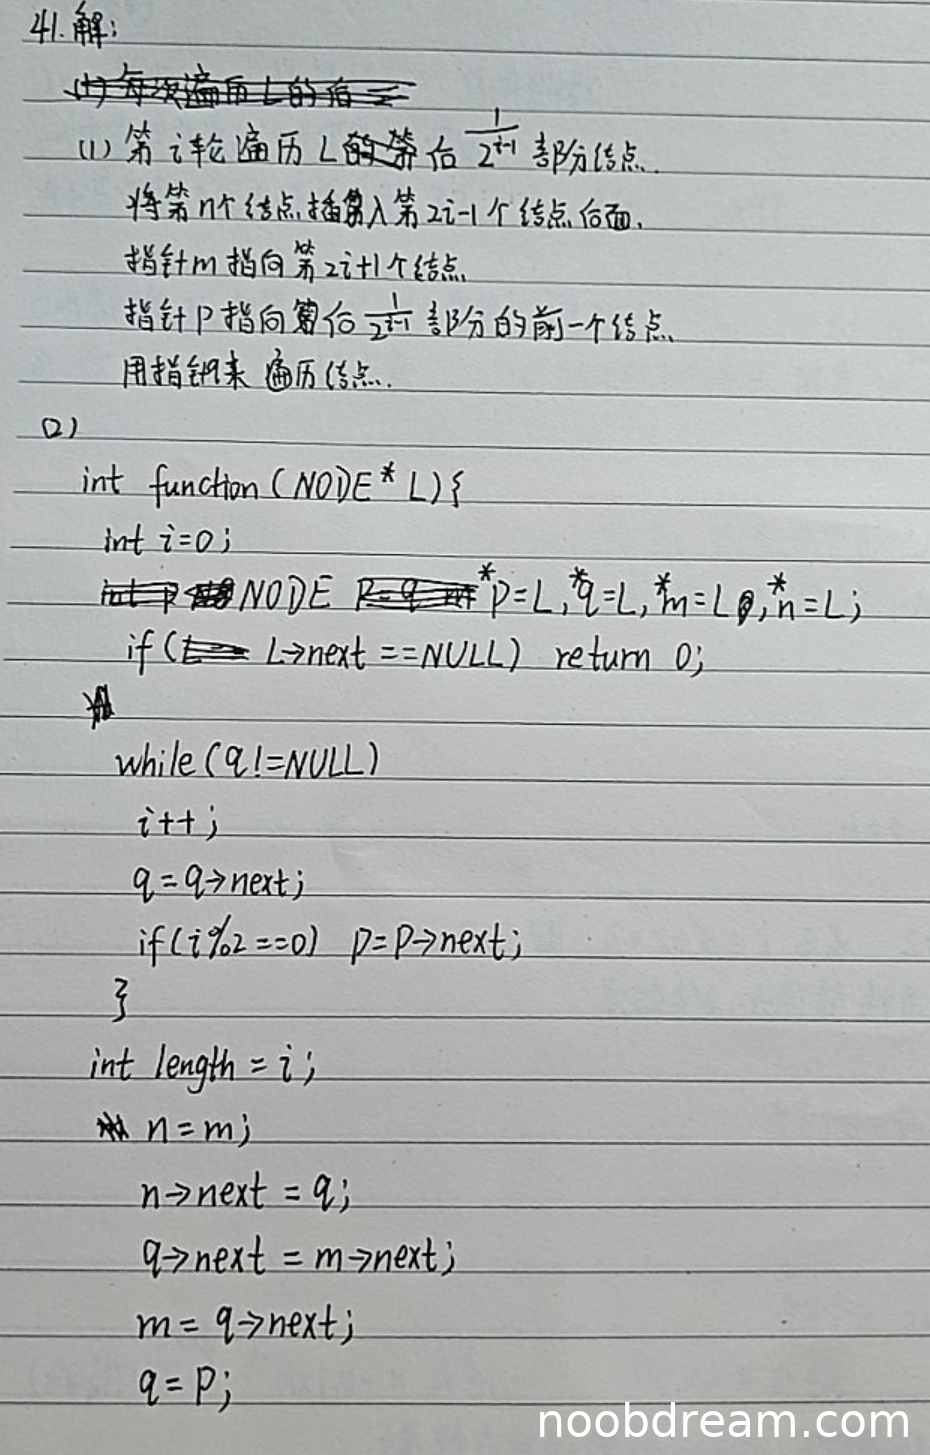 41.解:
(1) 每次遍历L的后
(1) 第i轮遍历L的第后 1/2^(i-1) 部分结点.
将第n个结点插入第2i-1个结点后面.
指针m指向第2i+1个结点
指针P指向第后 1/2^(i-1) 部分的前一个结点
用指针来遍历结点.
(2)
int function(NODE* L){
int i=0;
NODE *p=L,*q=L,*m=L,*n=L;
if(L->next==NULL) return 0;
while(q!=NULL)
i++;
q=q->next;
if(i%2==0) p=p->next;
}
int length=i;
n=m;
n->next=q;
q->next=m->next;
m=q->next;
q=p;
noobdream.com